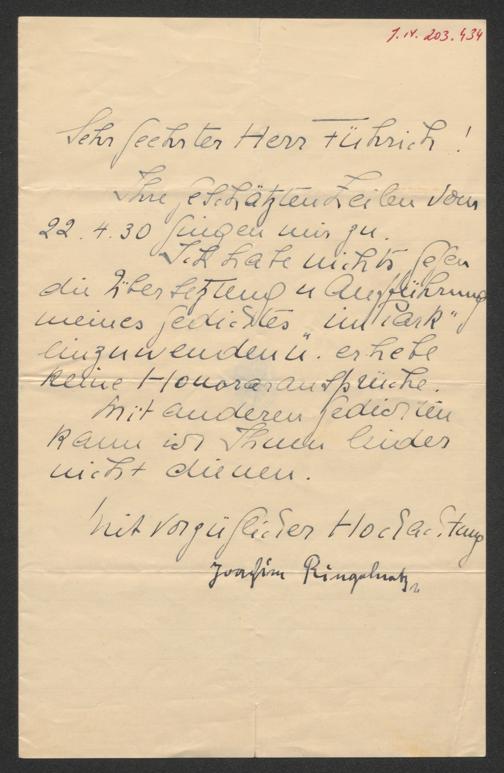 J.N. 203.434
Sehr geehrter Herr Führich!
Ihre geschätzten Zeilen vom
22.4.30 gingen mir zu.
Ich habe nichts gegen
die Übersetzung u Aufführung
meines Gedichtes „im Park"
einzuwenden u. erhebe
keine Honoraransprüche.
Mit anderen Gedichten
kann ich Ihnen leider
nicht dienen.
Mit vorzüglicher Hochachtung
Joachim Ringelnatz